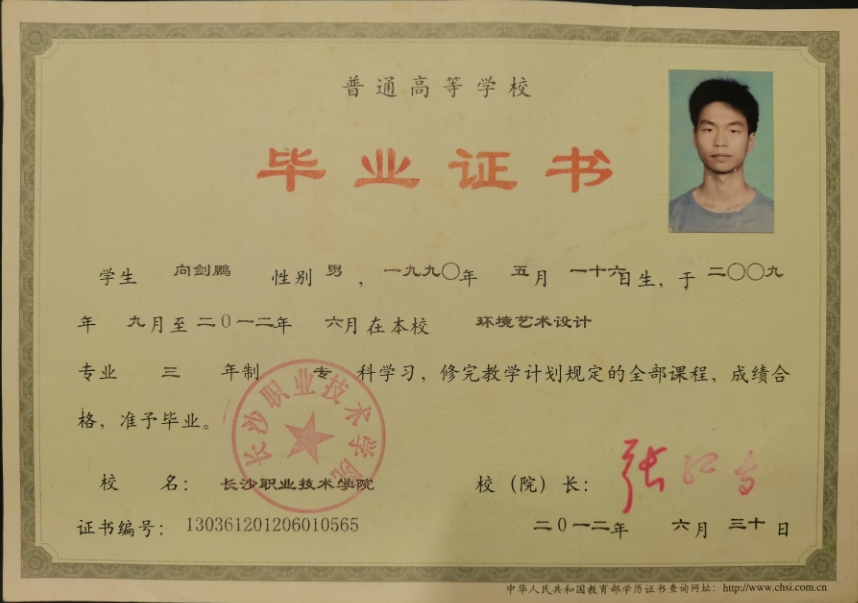 普通高等学校
毕业证书
学生 向剑鹏 性别 男 ，一九九〇年 五月 一十六日生，于 二〇〇九
年 九月至 二0一二年 六月在本校 环境艺术设计
专业 三 年制 专 科学习，修完教学计划规定的全部课程，成绩合
格，准予毕业。
长沙职业技术学院
校 名： 长沙职业技术学院 校（院）长：
证书编号： 130361201206010565 二0一二年 六月 三十日
中华人民共和国教育部学历证书查询网址：http://www.chsi.com.cn